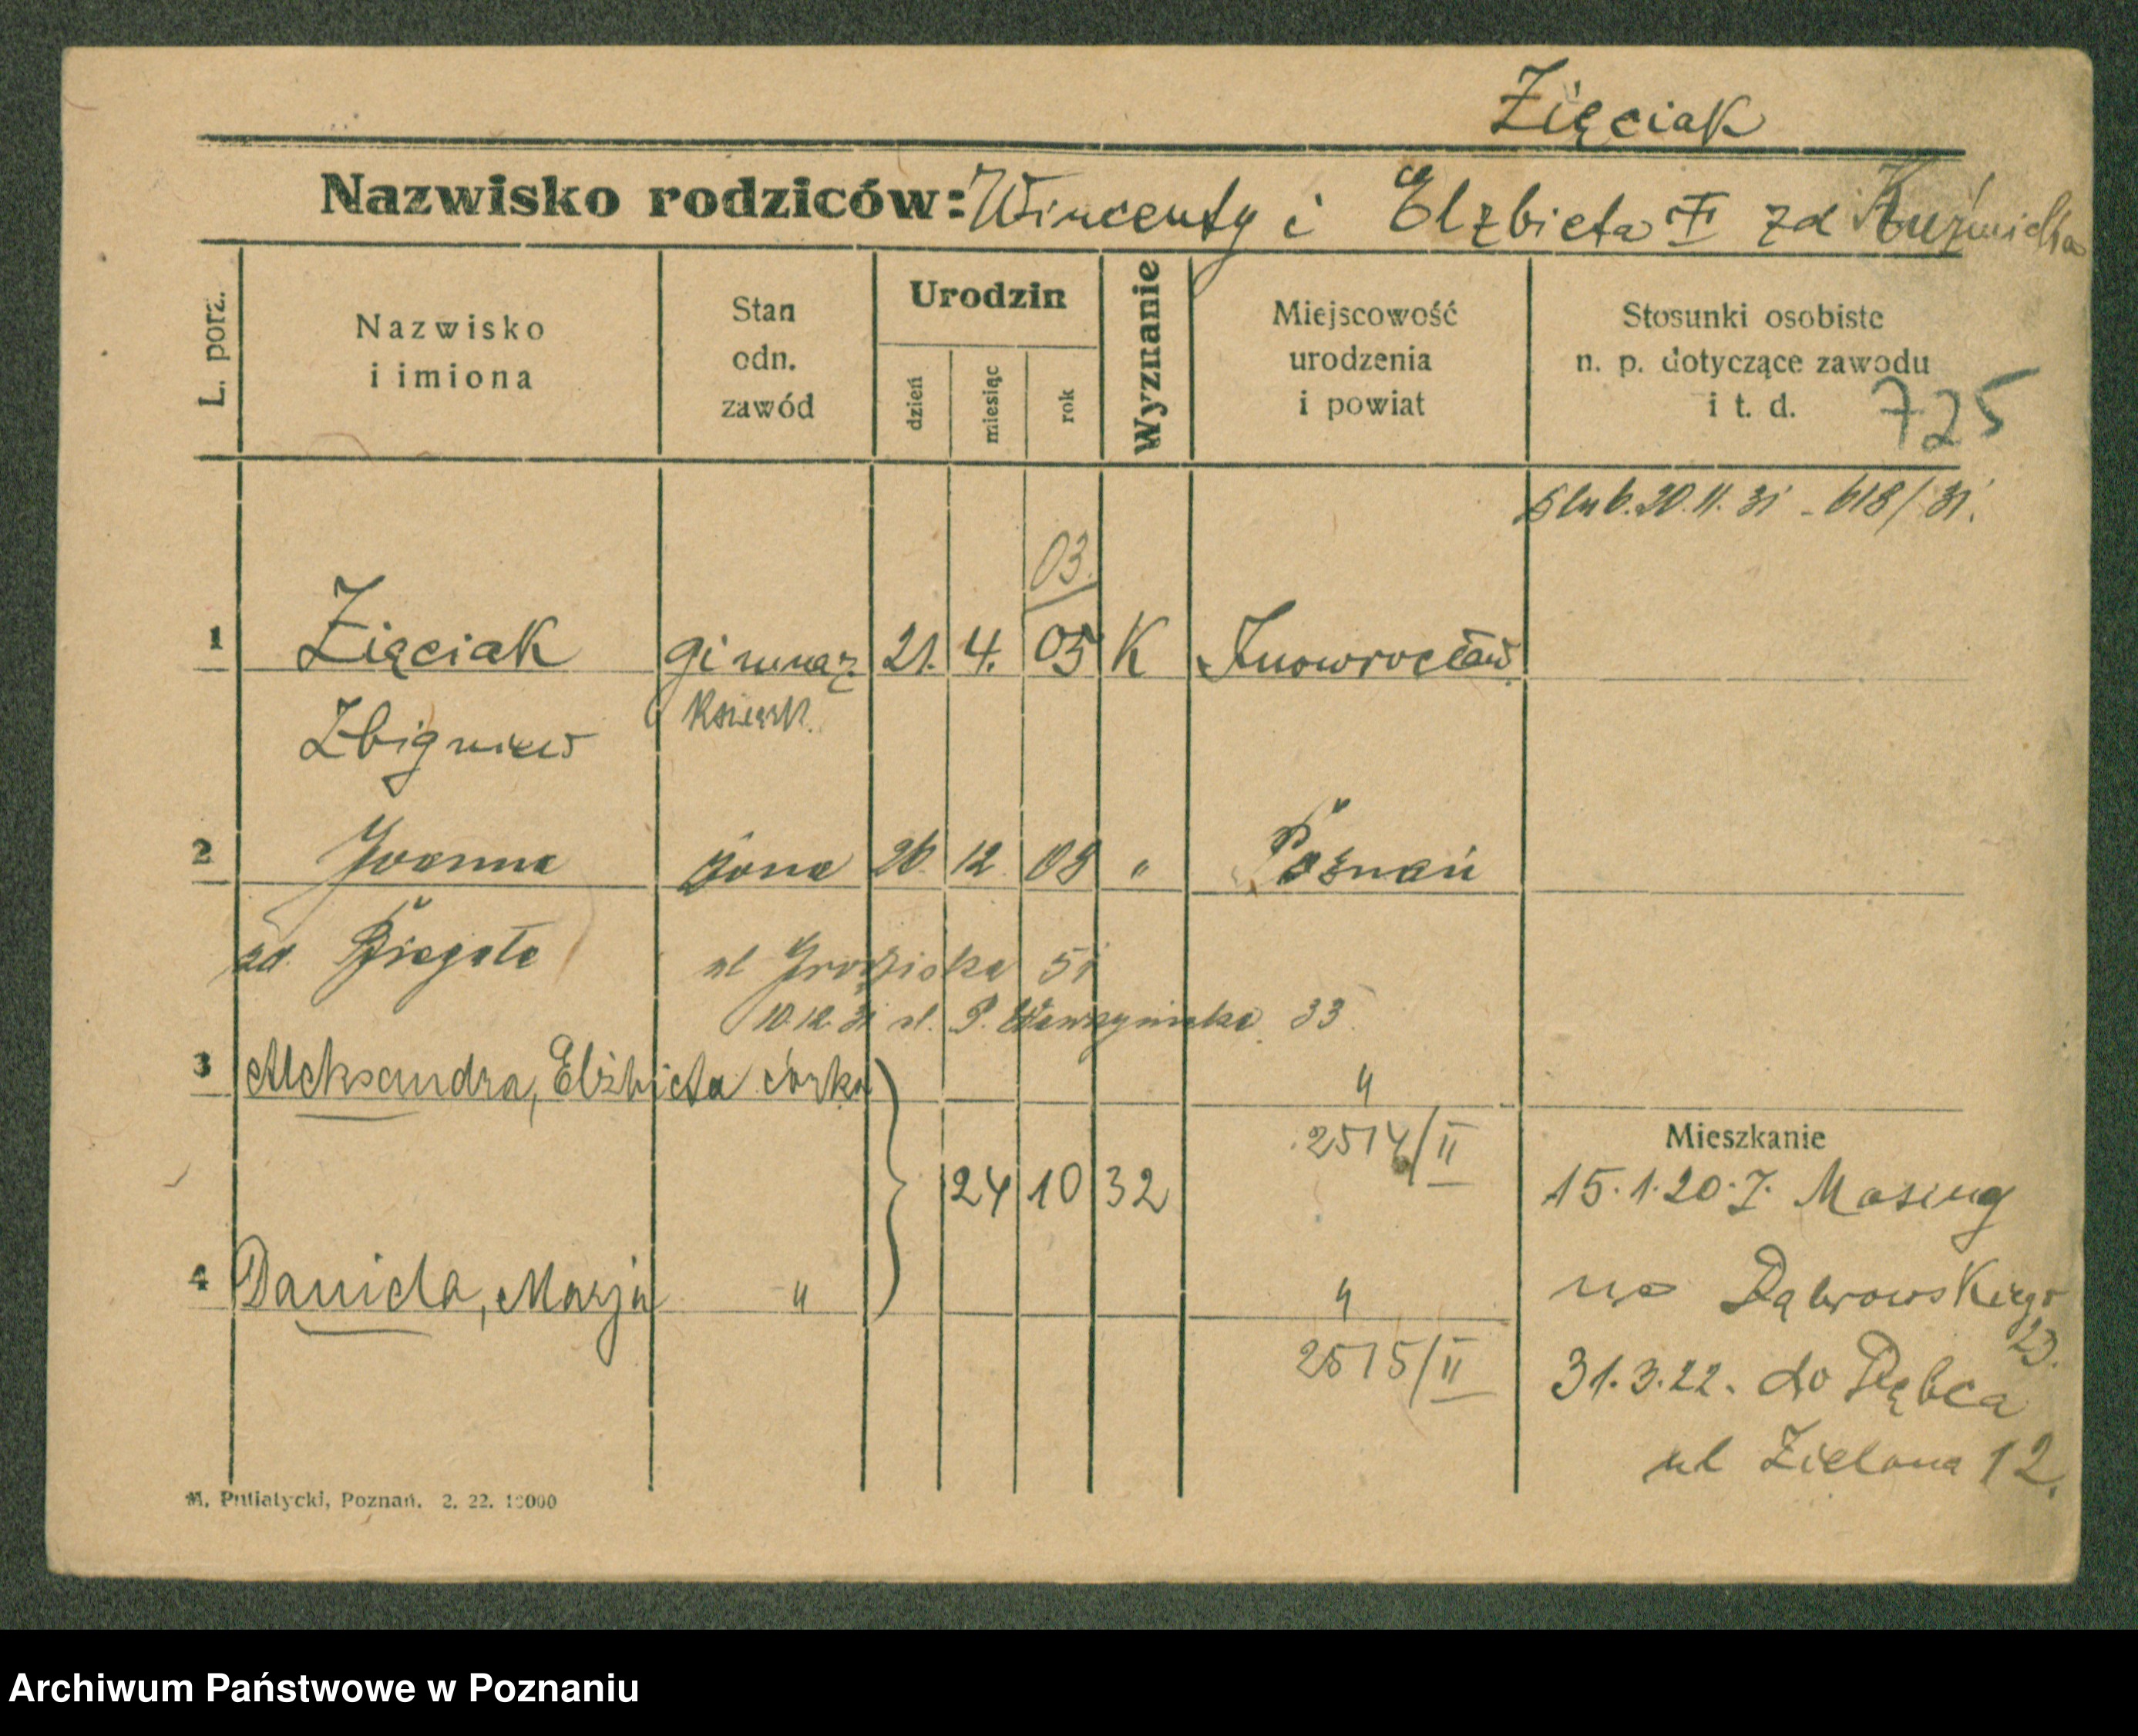 Zięciak
Nazwisko rodziców: Wincenty i Elżbieta zd
L. porz.
Nazwisko
i imiona
Stan
odn.
zawód
Urodzin
dzień
miesiąc
rok
Wyznanie
Miejscowość
urodzenia
i powiat
Stosunki osobiste
n. p. dotyczące zawodu
i t. d.
725
Ślub. 20.11.31 - 618/31.
03.
1 Zięciak gimnaz. 21. 4. 05 K Inowrocław
Zbigniew
2 Joanna żona 26 12 08 " Poznań
zd.
ul Grodziska 51
10.12.31 ul. P. Wawrzyniaka 33
3 Aleksandra, Elżbieta córka "
2514/II
Mieszkanie
24 10 32
15.1.20. J. Masing
na Dąbrowskiego
4 Daniela, Marja " "
23.
2515/II
31.3.22. do Dębca
ul Zielona 12.
M. Putiatycki, Poznań. 2. 22. 10000
Archiwum Państwowe w Poznaniu